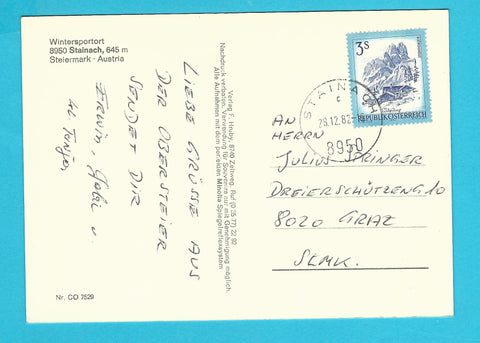 Wintersportort
8950 Stainach, 645 m
Steiermark - Austria
LIEBE GRÜSSE AUS
DER OBERSTEIER
SENDET DIR
ERWIN, Gabi u.
Nr. CO 7529
Verlag F. Hruby, 8740 Zeltweg. Ruf (0 35 77) 22 92
Nachdruck verboten, Verwendung für Souvenirs nur mit Genehmigung möglich.
Alle Aufnahmen mit dem perfekten Minolta Spiegelreflexsystem
3S
REPUBLIK ÖSTERREICH
STAINACH
c
28.12.82
8950
AN
HERRN
JULIUS SPRINGER
DREIERSCHÜTZENG 10
8020 GRAZ
STMK.